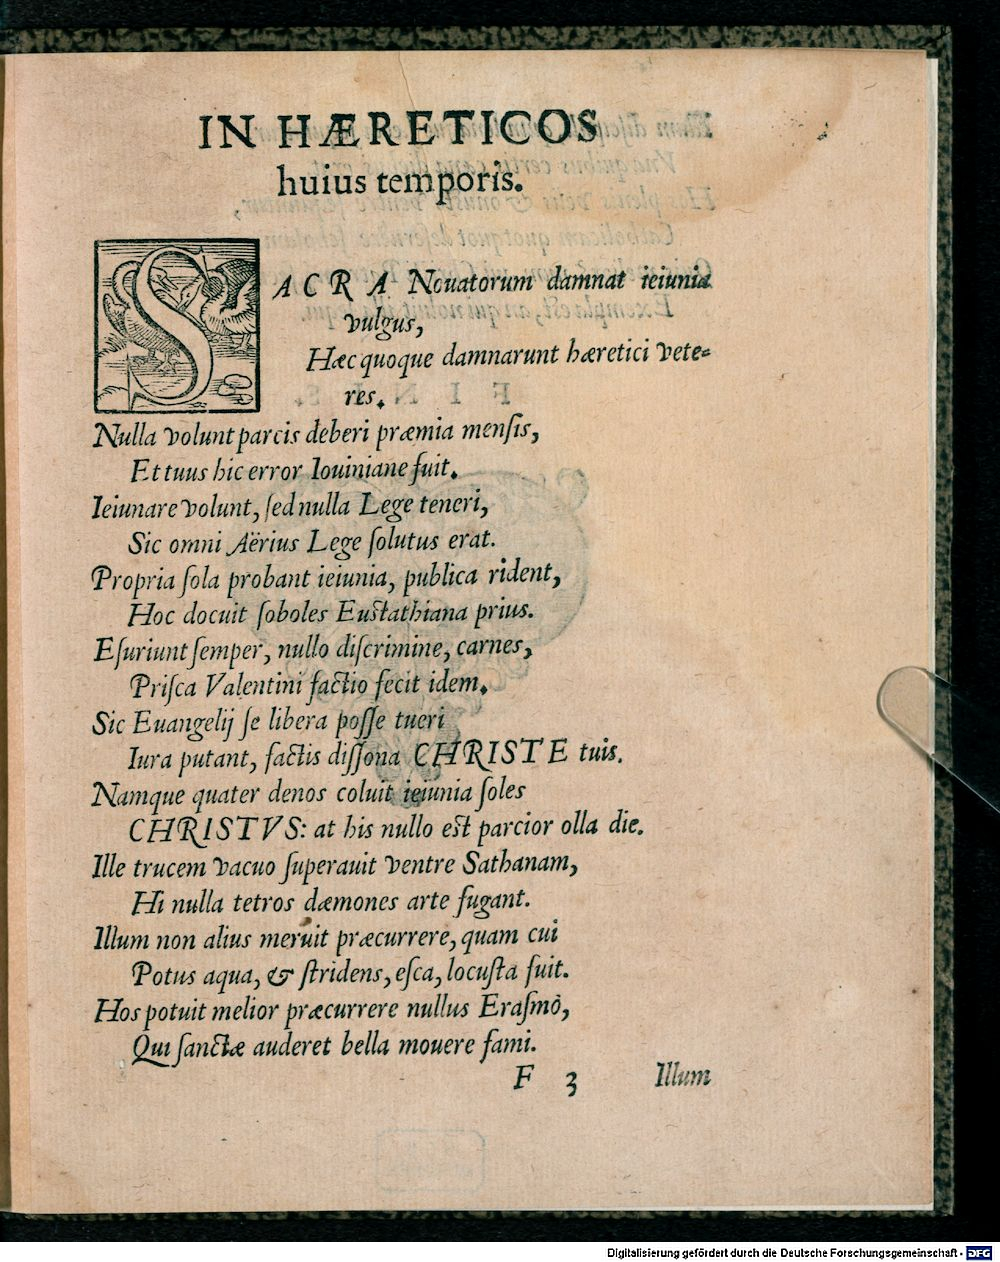 IN HÆRETICOS
huius temporis.
SACRA Nouatorum damnat ieiunia
vulgus,
Hæc quoque damnarunt hæretici vete=
res.
Nulla volunt parcis deberi præmia mensis,
Et tuus hic error Iouiniane fuit.
Ieiunare volunt, sed nulla Lege teneri,
Sic omni Aërius Lege solutus erat.
Propria sola probant ieiunia, publica rident,
Hoc docuit soboles Eustathiana prius.
Esuriunt semper, nullo discrimine, carnes,
Prisca Valentini factio fecit idem.
Sic Euangelij se libera posse tueri
Iura putant, factis dissona CHRISTE tuis.
Namque quater denos coluit ieiunia soles
CHRISTVS: at his nullo est parcior olla die.
Ille trucem vacuo superauit ventre Sathanam,
Hi nulla tetros dæmones arte fugant.
Illum non alius meruit præcurrere, quam cui
Potus aqua, & stridens, esca, locusta fuit.
Hos potuit melior præcurrere nullus Erasmò,
Qui sanctæ auderet bella mouere fami.
F 3 Illum
Digitalisierung gefördert durch die Deutsche Forschungsgemeinschaft - DFG